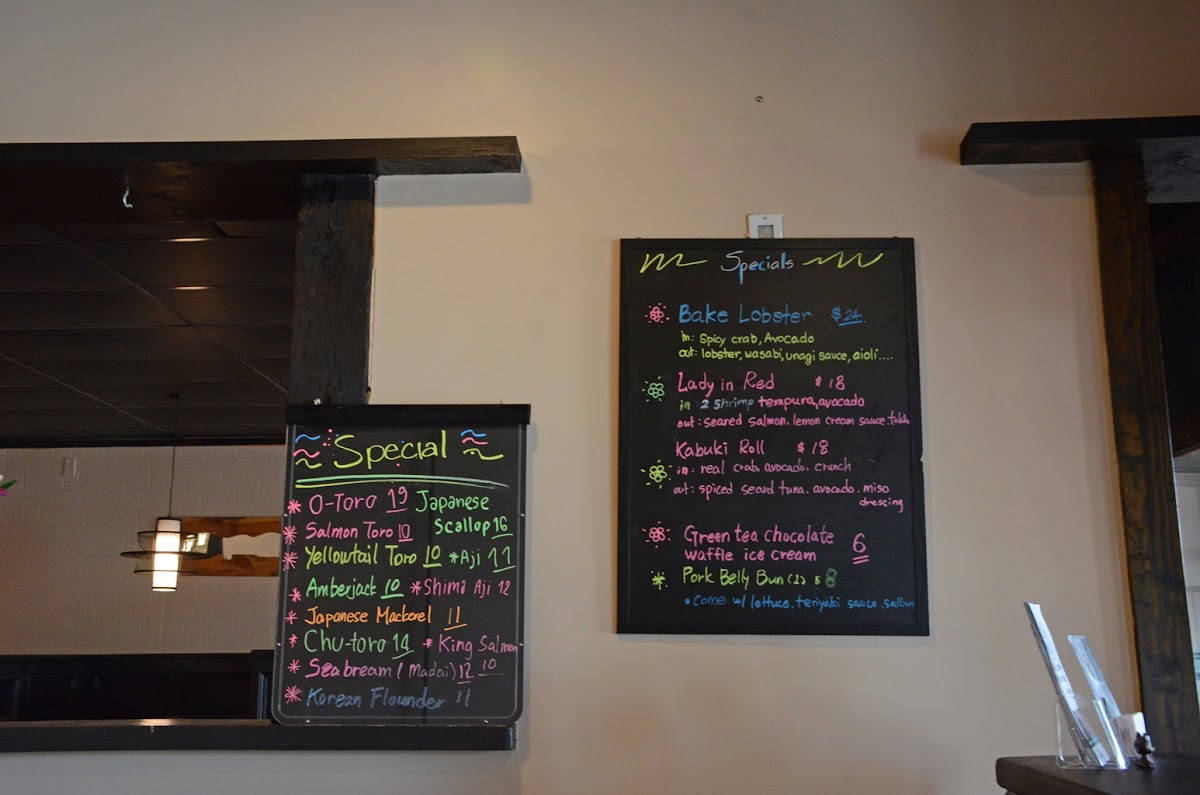 Special
O-Toro 19 Japanese
Scallop 16
Salmon Toro 10
Yellowtail Toro 10 *Aji 11
Amberjack 10 *Shima Aji 12
Japanese Mackerel 11
Chu-toro 14 *King Salmon
10
Seabream (Madai) 12
Korean Flounder 11
Specials
Bake Lobster $24
in: Spicy crab, Avocado
out: lobster, wasabi, unagi sauce, aioli....
Lady in Red $18
in 2 shrimp tempura, avocado
out: seared salmon. lemon cream sauce.
Kabuki Roll $18
in: real crab. avocado. crunch
out: spiced seard tuna. avocado. miso
dressing
Green tea chocolate 6
waffle ice cream
Pork Belly Bun (2) $8
Come w/ lettuce. teriyaki sauce.